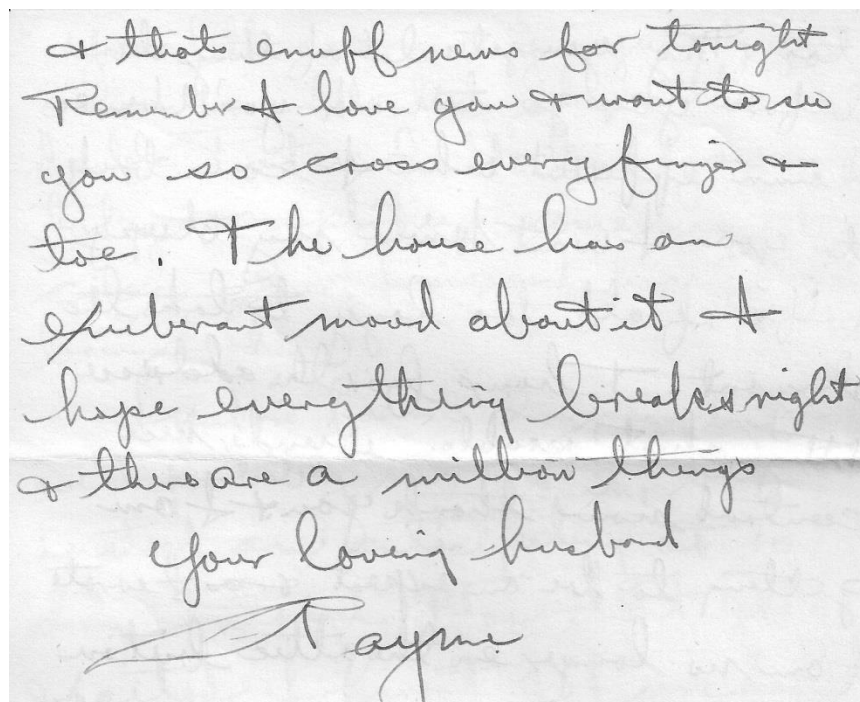 & thats enuff news for tonight
Remember I love you & want to see
you so cross every finger &
toe. The house has an
exuberant mood about it I
hope everything breaks right
& there are a million things
Your loving husband
Payne